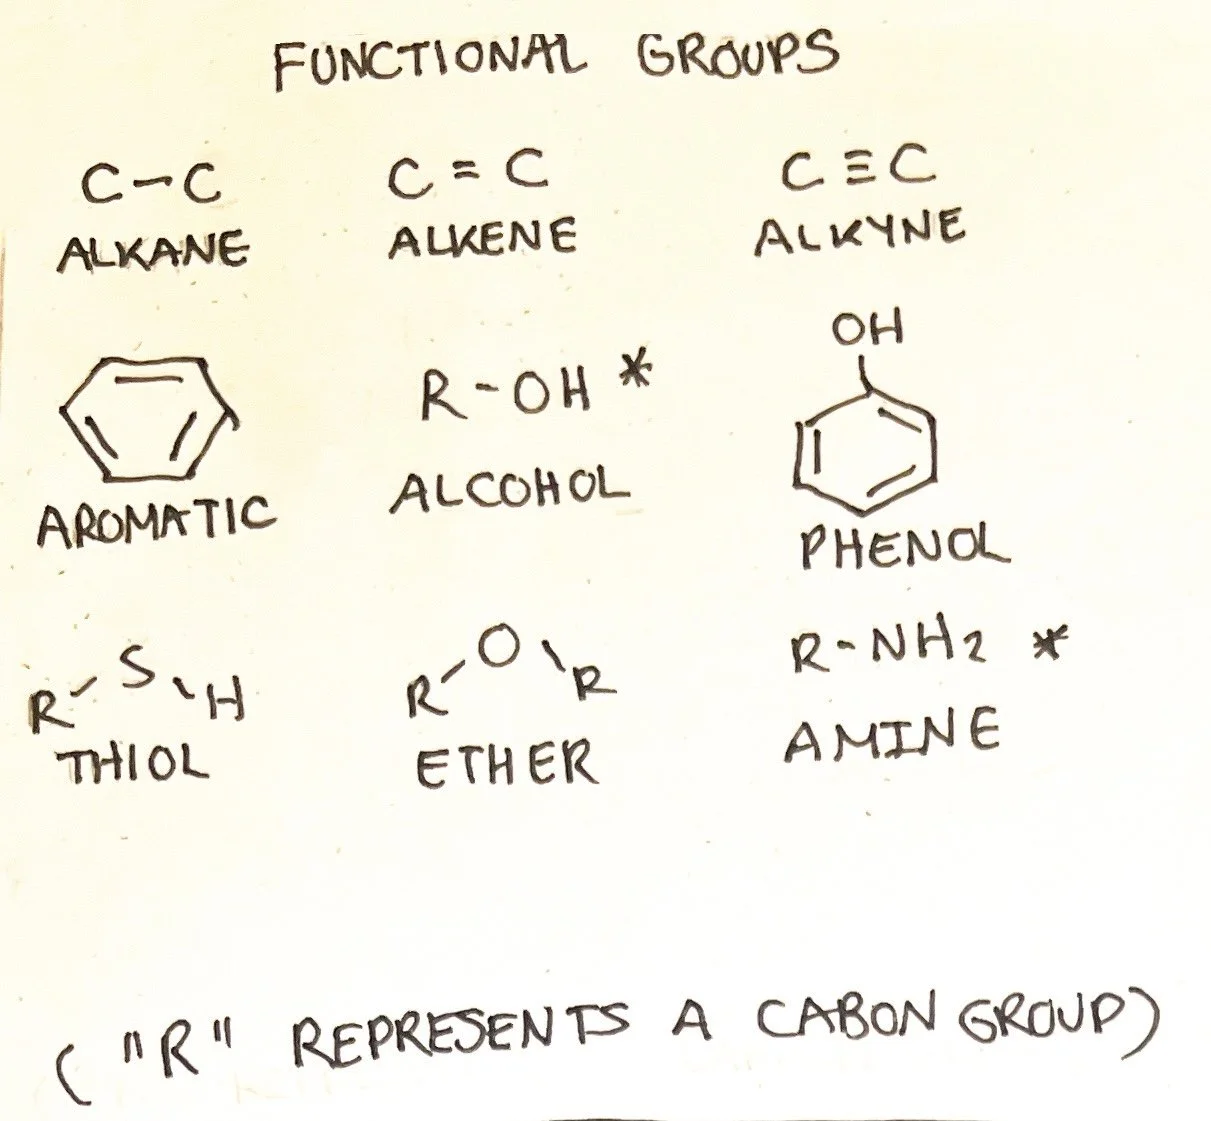 FUNCTIONAL GROUPS
C-C C=C C≡C
ALKANE ALKENE ALKYNE
OH
R-OH *
AROMATIC ALCOHOL PHENOL
R-S-H R-O-R R-NH2 *
THIOL ETHER AMINE
("R" REPRESENTS A CABON GROUP)